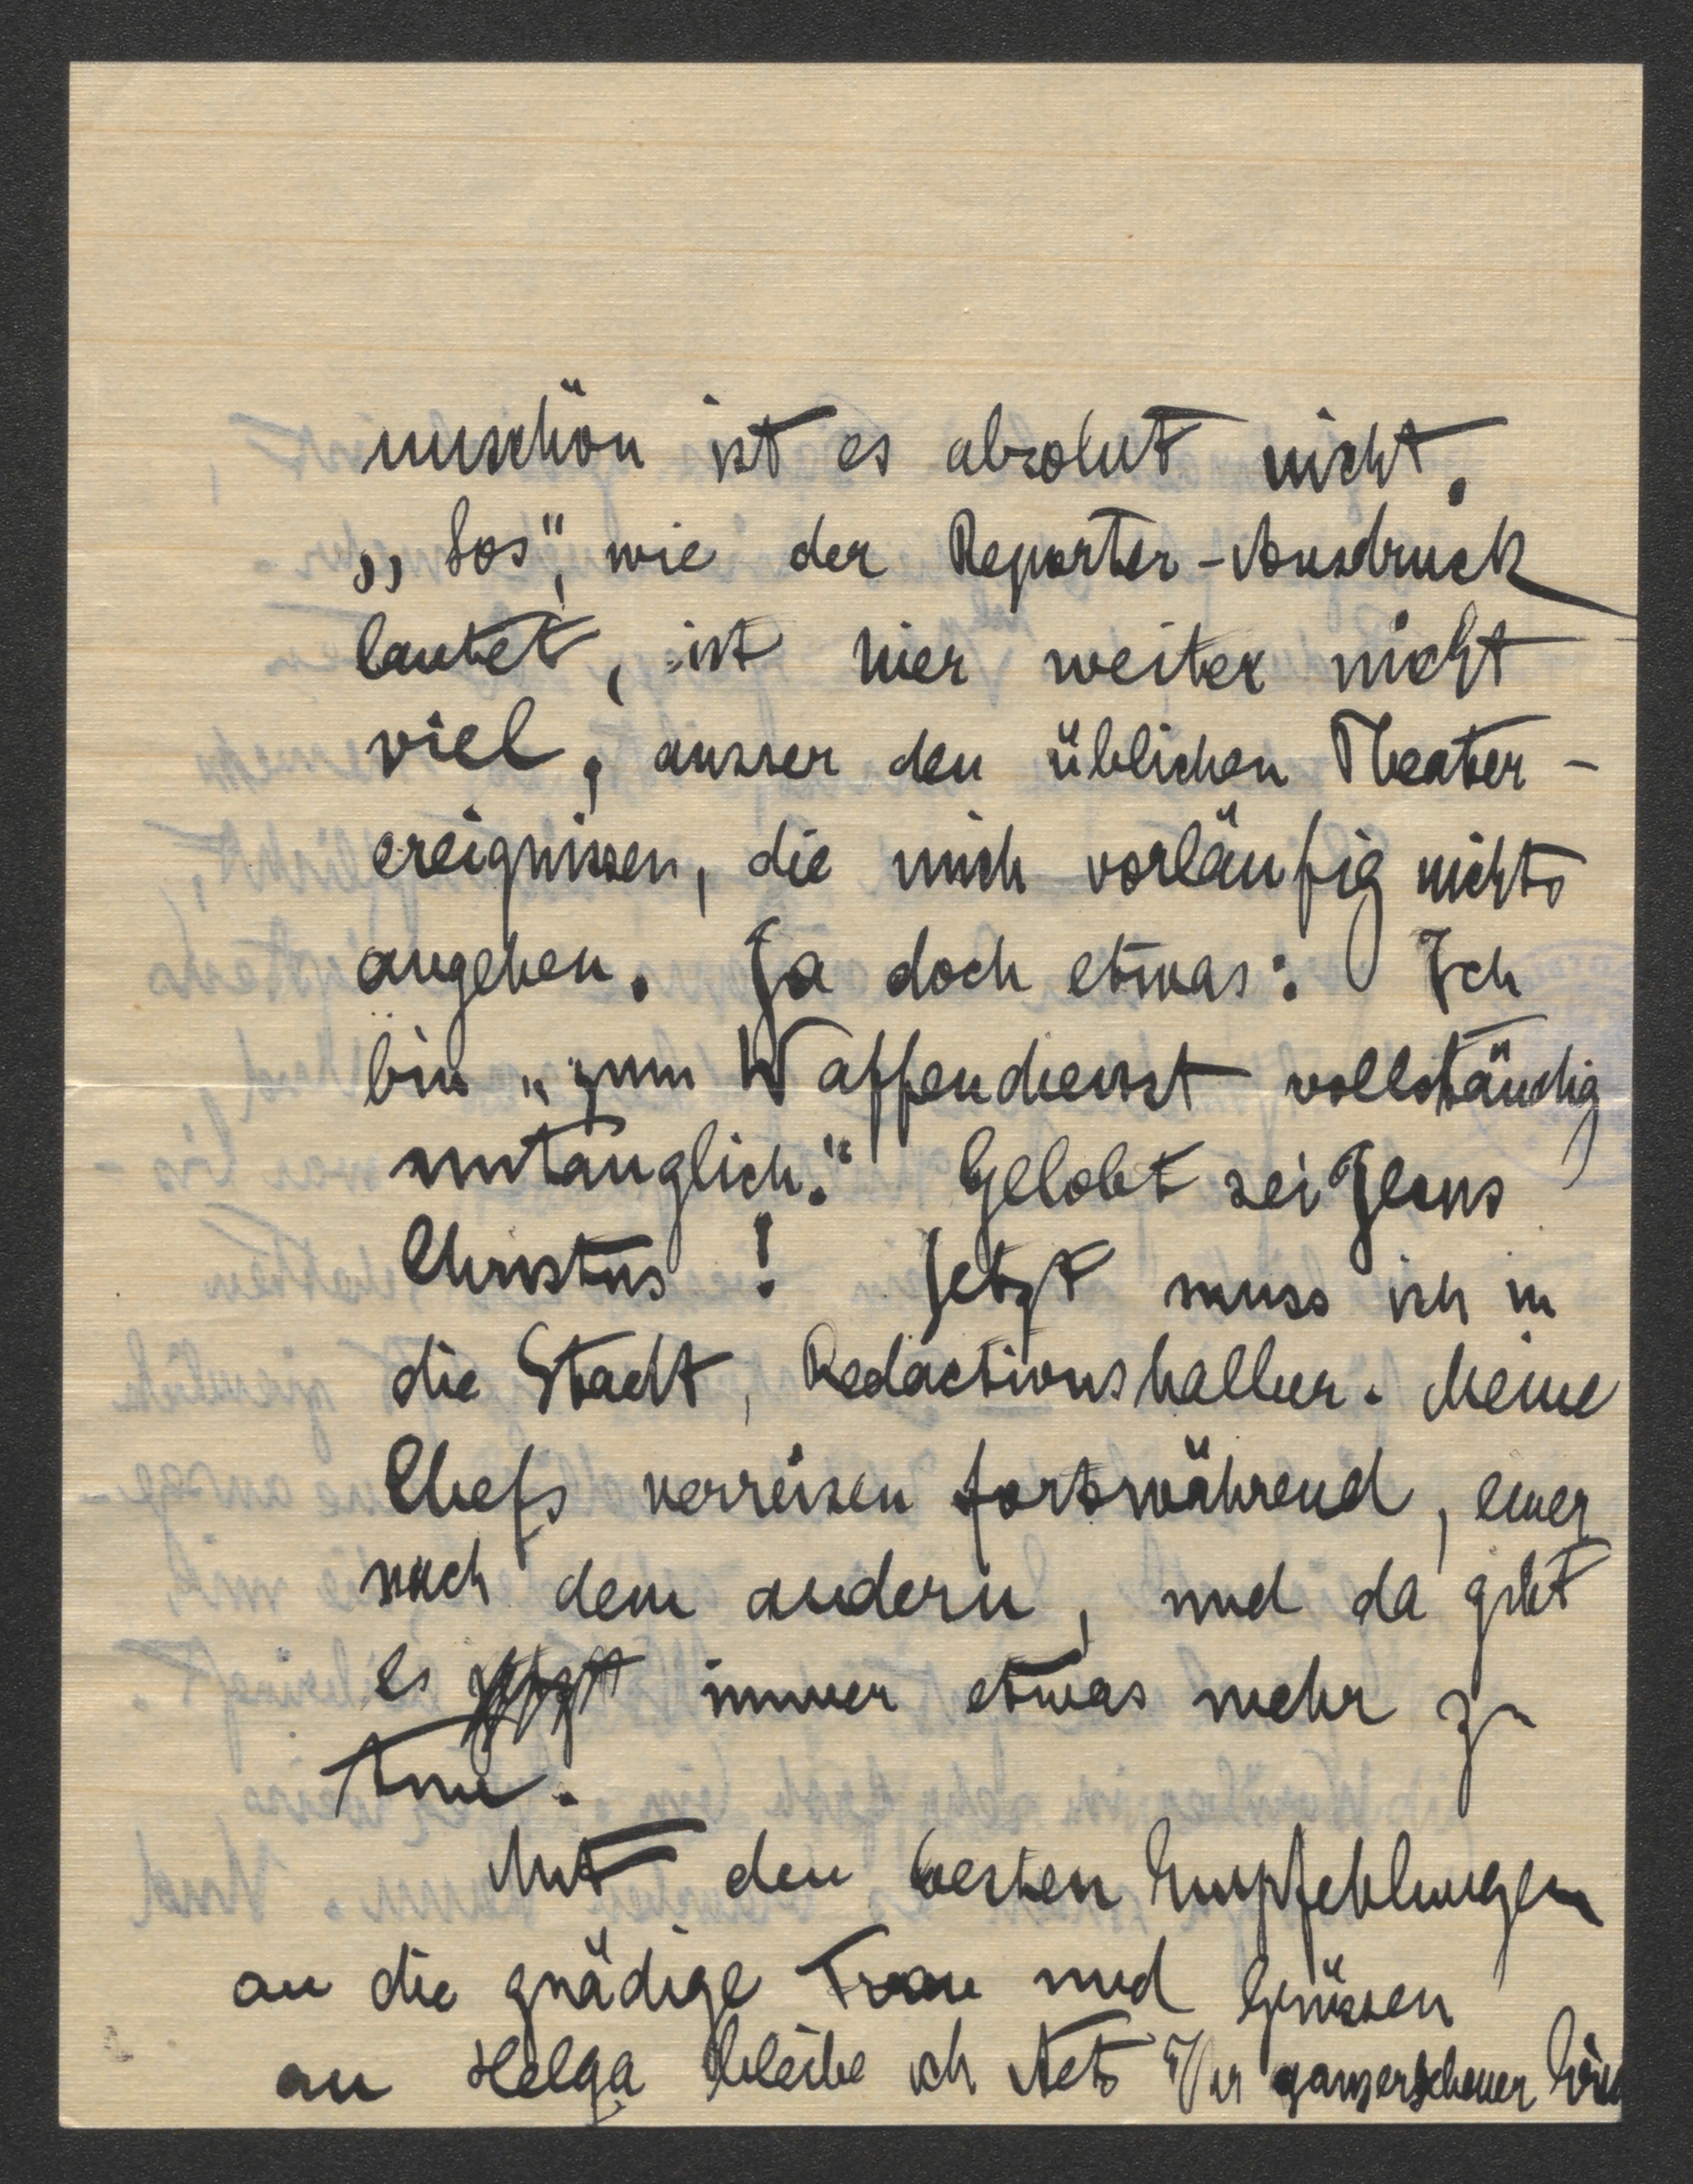 unschön ist es absolut nicht.
„Los", wie der Reporter-Ausdruck
lautet, ist hier weiter nicht
viel, ausser den üblichen Theater-
ereignissen, die mich vorläufig nichts
angehen. Ja doch etwas: Ich
bin „zum Waffendienst vollständig
untauglich." Gelobt sei Jesus
Christus! Jetzt muss ich in
die Stadt, Redactionshalber. Meine
Chefs verreisen fortwährend, einer
nach dem andern, und da gibt
es immer etwas mehr zu
tun.
Mit den besten Empfehlungen
an die gnädige Frau und Grüssen
an Helga bleibe ich stets Ihr